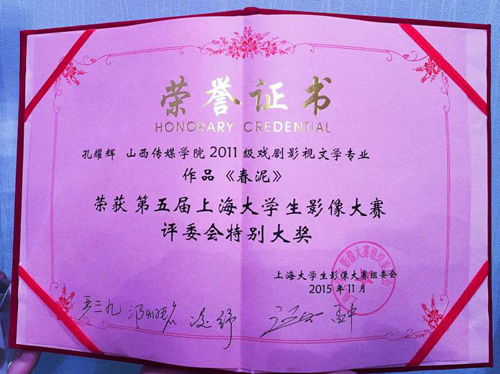 荣誉证书
HONORARY CREDENTIAL
孔耀辉 山西传媒学院 2011 级戏剧影视文学专业
作品《春泥》
荣获 第五届上海大学生影像大赛
评委会特别大奖
上海大学生影像大赛组委会
2015年11月